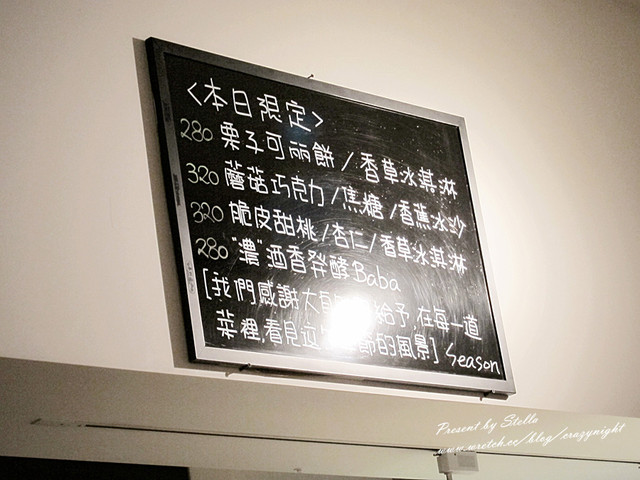 <本日限定>
280 栗子可丽餅/香草冰淇淋
320 蘑菇巧克力/焦糖/香蕉冰沙
320 脆皮甜桃/杏仁/香草冰淇淋
280 "濃"酒香發酵Baba
[我們感謝大自 給予,在每一道
菜裡,看見這 節的風景] Season
Present by Stella
www.wretch.cc/blog/crazynight